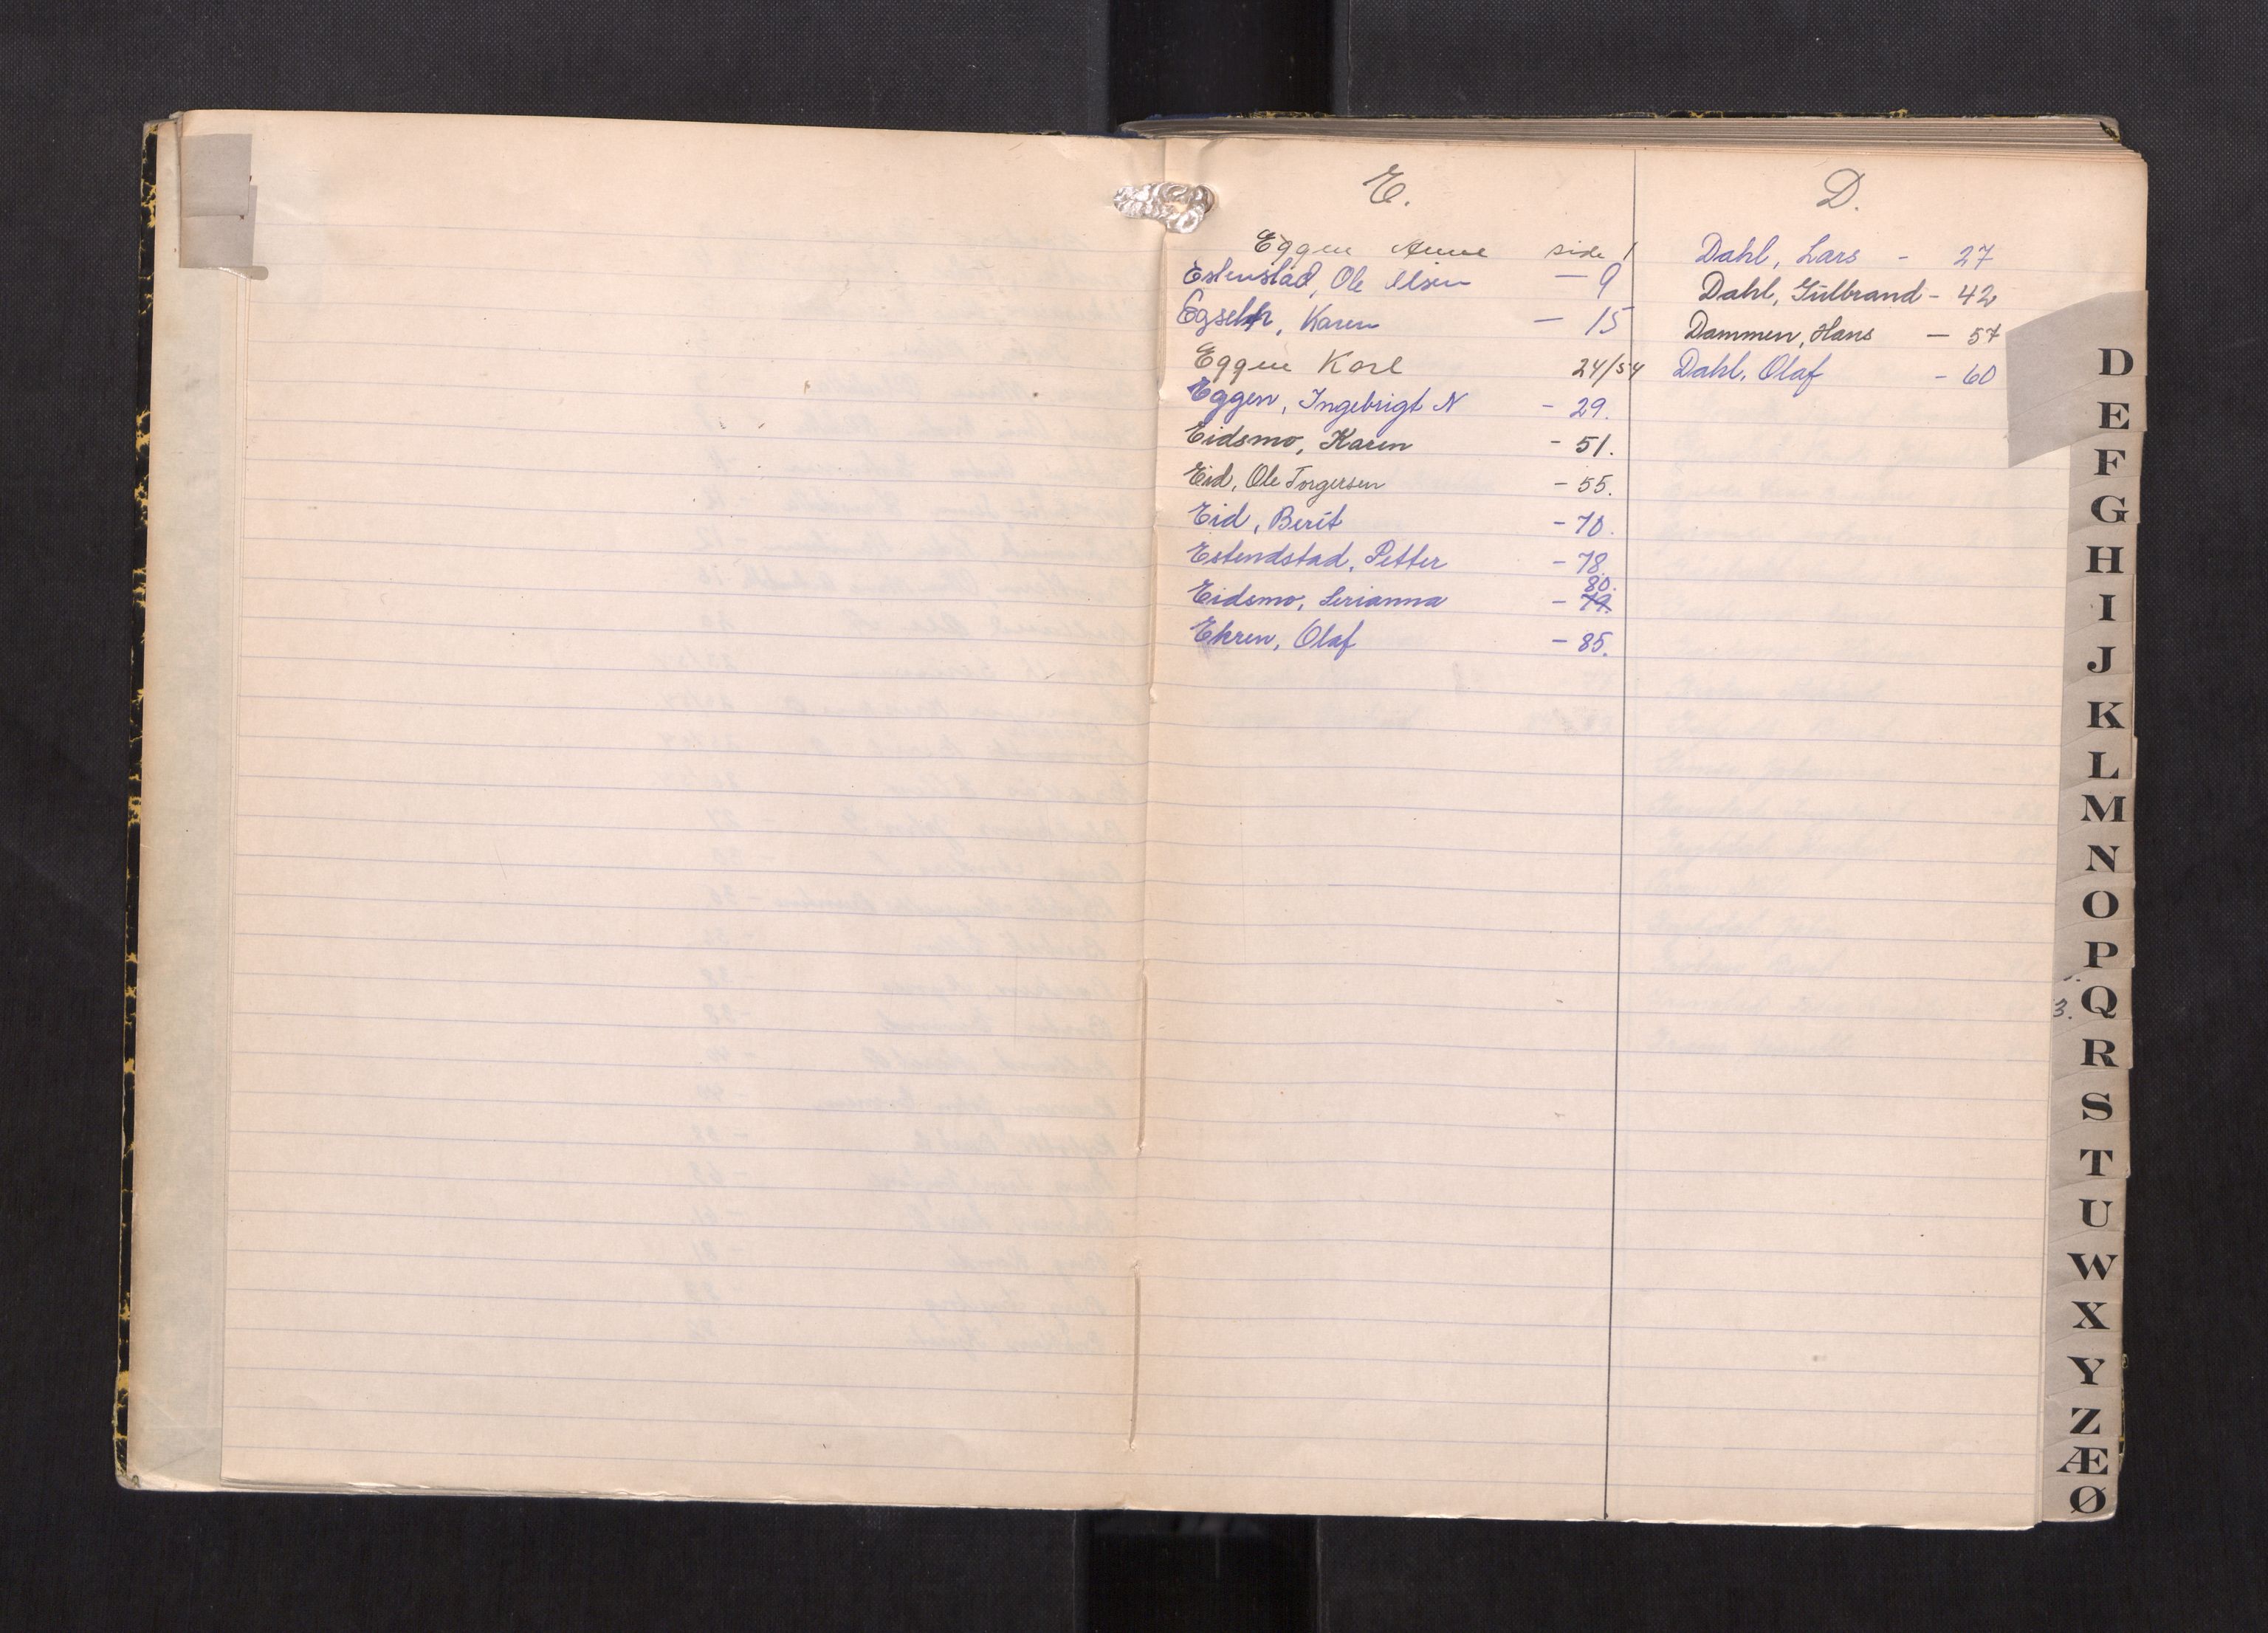 E.
Eggen Anne side 1
Estenstad, Ole Olsen — 9
Karen — 15
Eggen Karl 24/54
Eggen, Ingebrigt N - 29.
Eidsmo, Karen - 51.
Eid, Ole Torgersen - 55.
Eid, Berit - 70.
Estendstad, Petter - 78.
80.
Eidsmo, Serianna - 79.
Ehren, Olaf - 85.
D.
Dahl, Lars - 27
Dahl, Gulbrand - 42
Dammen, Hans — 57
Dahl, Olaf - 60
D
E
F
G
H
I
J
K
L
M
N
O
P
3. Q
R
S
T
U
W
X
Y
Z
Æ
Ø